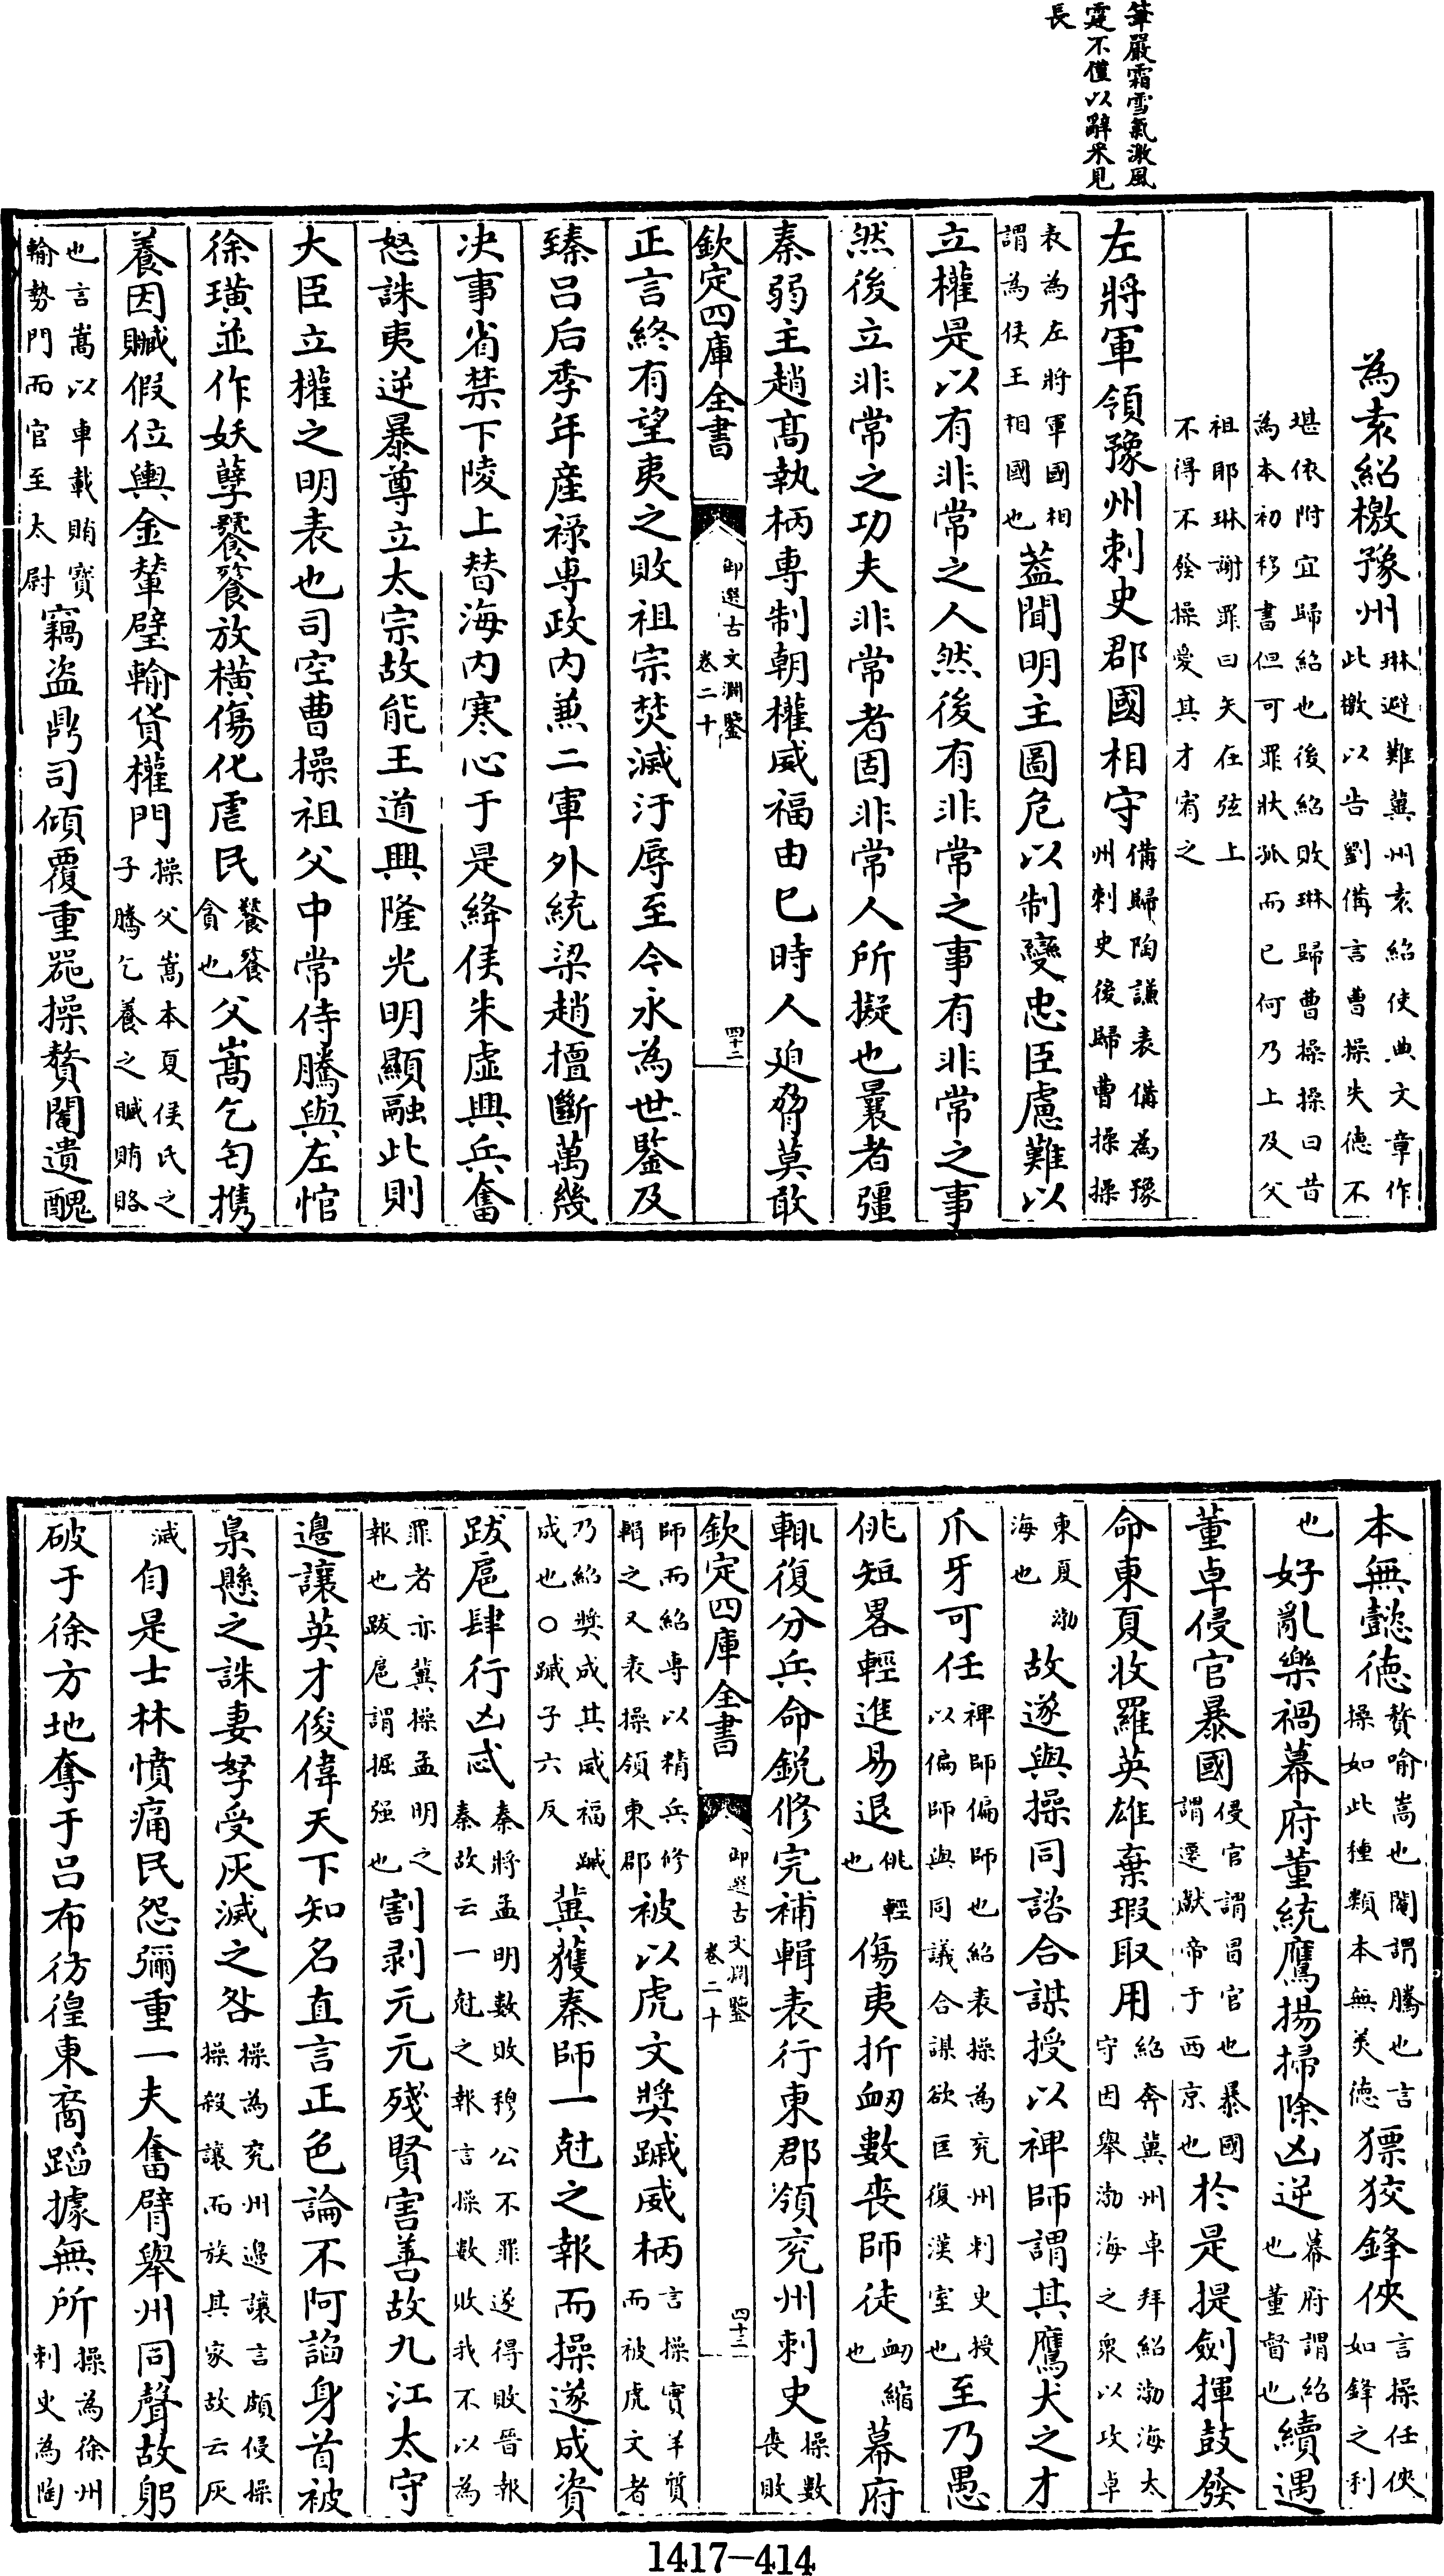 筆嚴霜雪氣激風
霆不僅以辭采見
長
為袁紹檄豫州琳避難冀州袁紹使典文章作此檄以告劉備言曹操失徳不
堪依附宜歸紹也後紹敗琳歸曹操操曰昔為本初移書但可罪狀孤而已何乃上及父
祖耶琳謝罪曰矢在弦上不得不發操愛其才宥之
左將軍領豫州刺史郡國相守備歸陶謙表備為豫州刺史後歸曹操操
表為左將軍國相謂為侯王相國也葢聞明主圖危以制變忠臣慮難以
立權是以有非常之人然後有非常之事有非常之事
然後立非常之功夫非常者固非常人所擬也曩者彊
秦弱主趙髙執柄專制朝權威福由已時人迫脅莫敢
欽定四庫全書 御選古文淵鑒卷二十 四十二
正言終有望夷之敗祖宗焚滅汙辱至今永為世鑒及
臻吕后季年産祿專政内兼二軍外統梁趙擅斷萬幾
决事省禁下陵上替海内寒心于是絳侯朱虚興兵奮
怒誅夷逆暴尊立太宗故能王道興隆光明顯融此則
大臣立權之明表也司空曹操祖父中常侍騰與左悺
徐璜並作妖孽饕餮放橫傷化虐民饕餮貪也父嵩乞匄携
養因贓假位輿金輦璧輸貨權門操父嵩本夏侯氏之子騰乞養之贓賄賂
也言嵩以車載賄寳輸勢門而官至太尉竊盜鼎司傾覆重器操贅閹遺醜
本無懿徳贅喻嵩也閹謂騰也言操如此種類本無美徳獧狡鋒俠言操任俠如鋒之利
也好亂樂禍幕府董統鷹揚掃除凶逆幕府謂紹也董督也續遇
董卓侵官暴國侵官謂冒官也暴國謂遷獻帝于西京也於是提劍揮鼓發
命東夏收羅英雄棄瑕取用紹奔冀州卓拜紹渤海太守因舉渤海之衆以攻卓
東夏渤海也故遂與操同諮合謀授以裨師謂其鷹犬之才
爪牙可任裨師偏師也紹表操為兖州刺史授以偏師與同議合謀欲匡復漢室也至乃愚
佻短畧輕進易退佻輕也傷夷折衂數喪師徒衂縮也幕府
輒復分兵命鋭修完補輯表行東郡領兖州刺史操數喪敗
欽定四庫全書 御選古文淵鑒卷二十 四十三
師而紹專以精兵修輯之又表操領東郡被以虎文奬蹴威柄言操實羊質而被虎文者
乃紹奬成其威福蹴成也○蹴子六反冀獲秦師一尅之報而操遂成資
跋扈肆行凶忒秦將孟明數敗穆公不罪遂得敗晉報秦故云一尅之報言操數敗我不以為
罪者亦冀操孟明之報也跋扈謂掘强也割剥元元殘賢害善故九江太守
邊讓英才俊偉天下知名直言正色論不阿諂身首被
梟懸之誅妻孥受灰滅之咎操為兖州邊讓言頗侵操操殺讓而族其家故云灰
滅自是士林憤痛民怨彌重一夫奮臂舉州同聲故躬
破于徐方地奪于吕布彷徨東裔蹈據無所操為徐州刺史為陶
1417—414